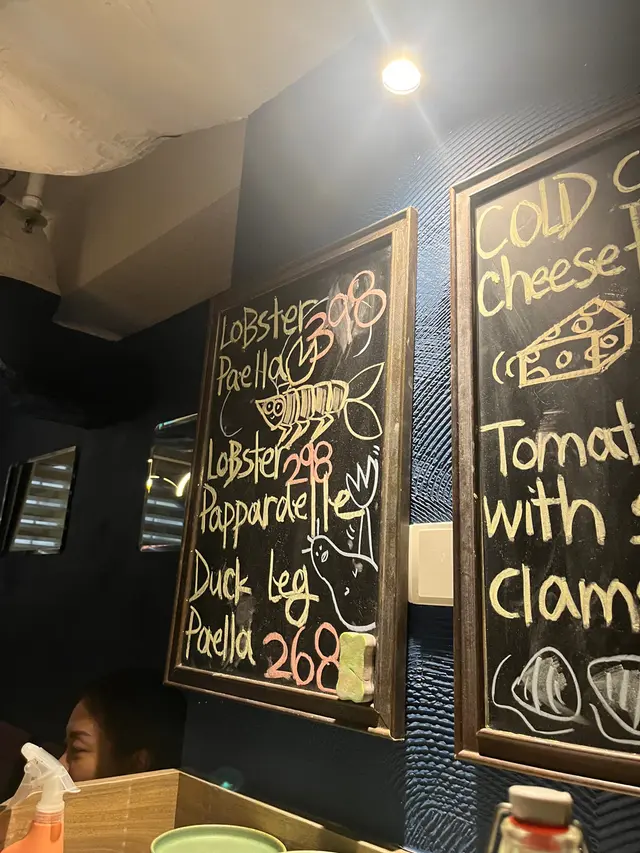 LoBster 398
Paella
LoBster 298
Pappardelle
Duck Leg
Paella 268
COLD
Cheese
Tomat
with
Clams